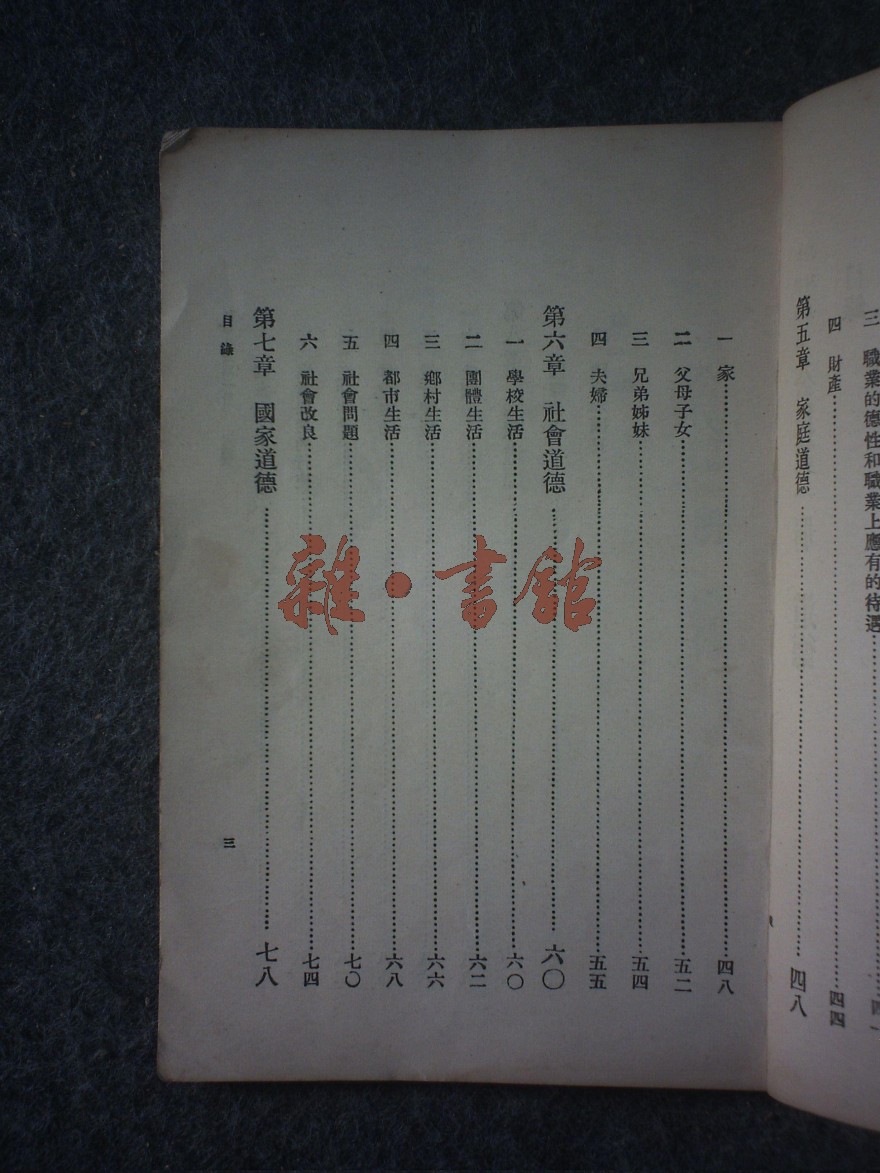 三 職業的德性和職業上應有的待遇
四 財產……四四
第五章 家庭道德……四八
一 家……四八
二 父母子女……五二
三 兄弟姊妹……五四
四 夫婦……五五
第六章 社會道德……六〇
一 學校生活……六〇
二 團體生活……六二
三 鄉村生活……六六
四 都市生活……六八
五 社會問題……七〇
六 社會改良……七四
第七章 國家道德……七八
目錄 三
雜·書館